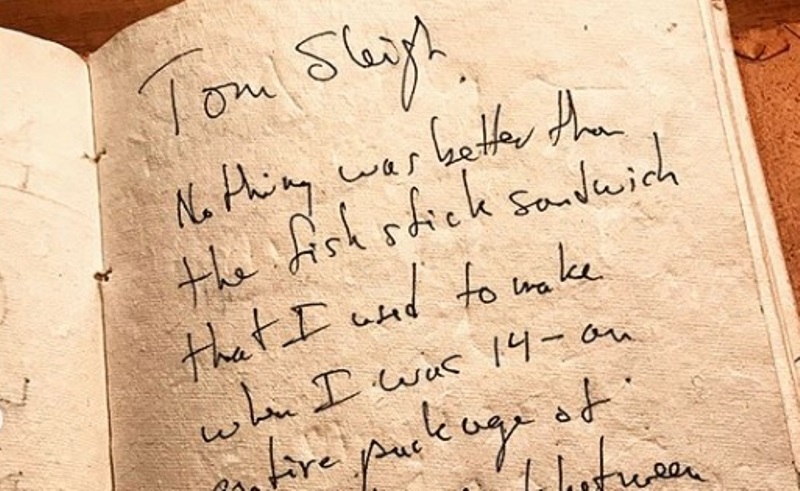 Tom Sleigh.
Nothing was better than
the fish stick sandwich
that I used to make
when I was 14 – an
entire package of
between